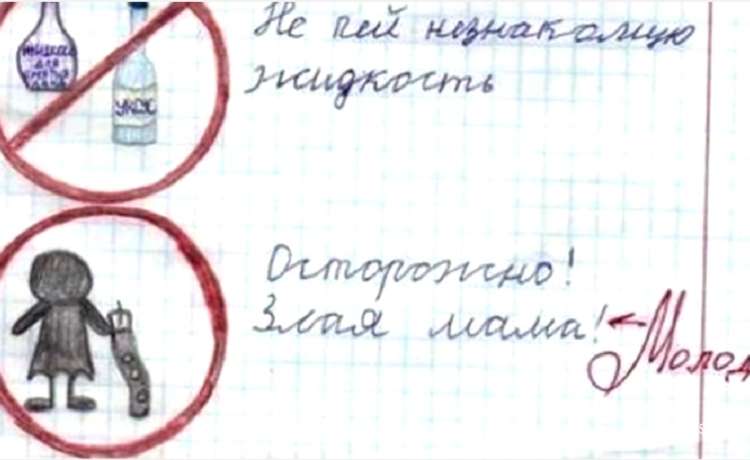 Не пей незнакомую
жидкость
жидкость
для
УКСУС
Осторожно!
Злая мама!
Молод